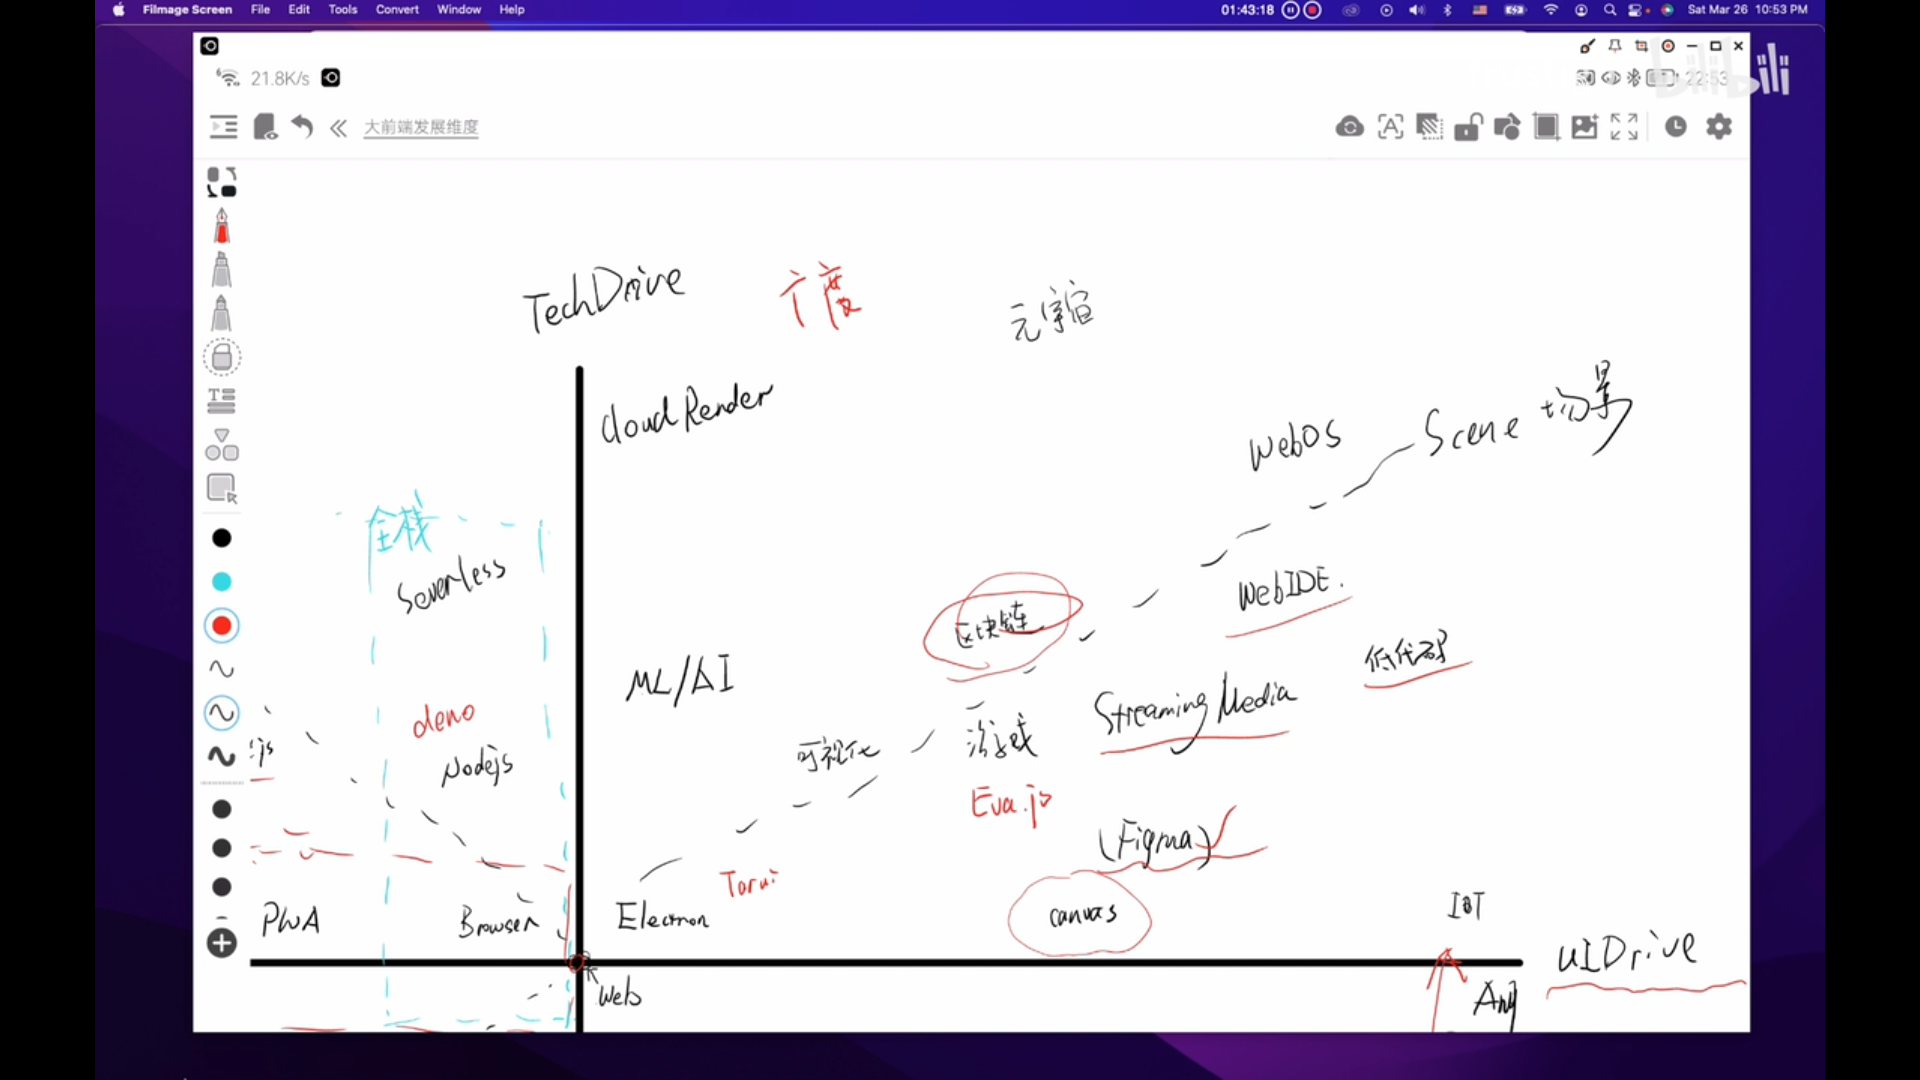 Filmage Screen File Edit Tools Convert Window Help 01:43:18 Sat Mar 26 10:53 PM
21.8K/s 22:53
bilibili
大前端发展维度
TechDrive 广度 元宇宙
CloudRender
WebOS Scene 场景
全栈
Severless
区块链 WebIDE.
低代码
ML/AI
Streaming Media
deno
可视化 游戏
js
Nodejs
Eva.js
(Figma)
Tarui
PWA Browser Electron canvas IOT
UIDrive
Web
Any